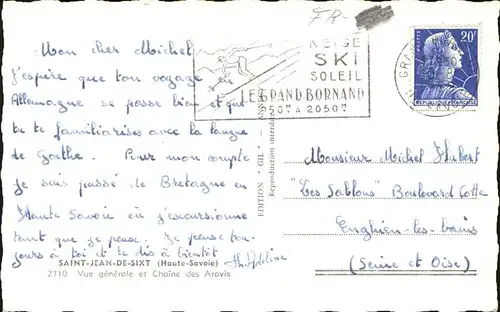 FR-
Mon cher Michel,
J'espère que ton voyage en
Allemagne se passe bien et que
tu te familiarises avec la langue
de Goethe. Pour mon compte
je suis passé de Bretagne en
Haute Savoie où j'excursionne
tant que je peux. Je pense tou-
jours à toi et te dis à bientôt
SAINT-JEAN-DE-SIXT (Haute-Savoie)
2710 Vue générale et Chaîne des Aravis
EDITION "GIL"
Reproduction interdite
NEIGE
SKI
SOLEIL
LE GRAND BORNAND
950ᵐ A 2050ᵐ
POSTES
20ᶠ
REPUBLIQUE FRANÇAISE
Monsieur Michel Hubert
"Les Sablons" Boulevard Cotte
Enghien-les-bains
(Seine et Oise)